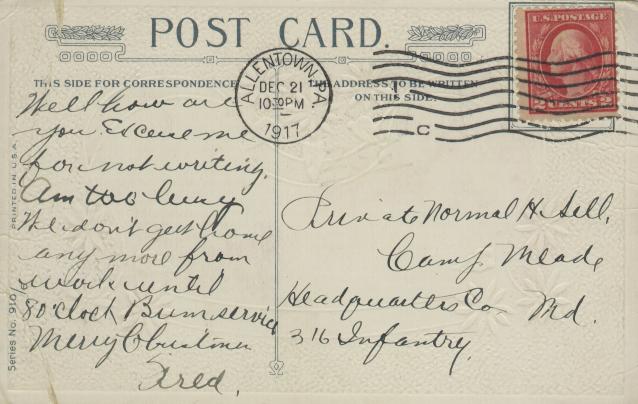 POST CARD.
THIS SIDE FOR CORRESPONDENCE
THE ADDRESS TO BE WRITTEN
ON THIS SIDE.
ALLENTOWN, PA.
DEC 21
1030PM
1917
C
U.S. POSTAGE
2 CENTS 2
PRINTED IN U.S.A.
Series No. 910
Well how are
you Excuse me
for not writing.
Am too busy
We don't get home
any more from
work until
8 o'clock Bum service
Merry Christmas
Fred.
Private Normal H. Sell,
Camp Meade
Headquarters Co Md.
316 Infantry.